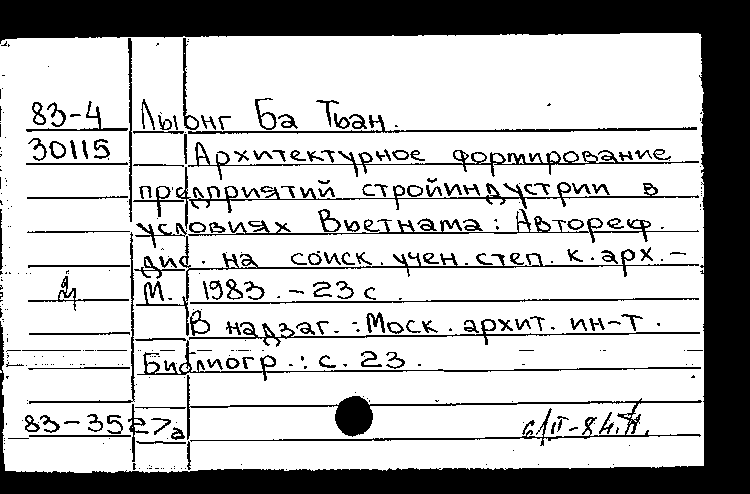 83-4 Лыонг Ба Тьан.
30115 Архитектурное формирование
предприятий стройиндустрии в
условиях Вьетнама: Автореф.
дис. на соиск. учен. степ. к. арх. -
М., 1983. - 23 с.
В надзаг.: Моск. архит. ин-т.
Библиогр.: с. 23.
83-3527а